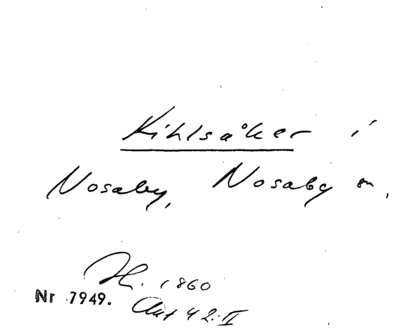 Kihlsåker i
Nosaby, Nosaby sn,
H. 1860
Nr 7949. Akt 42:II